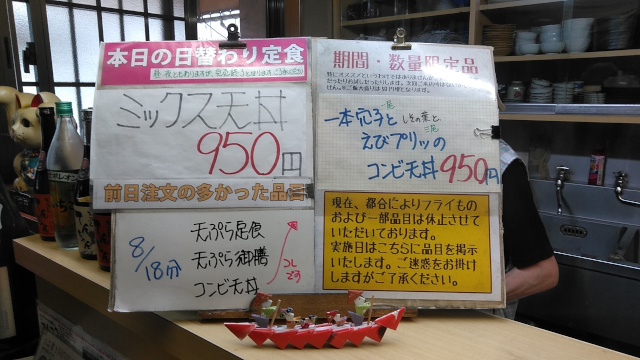 本日の日替わり定食
ミックス天丼
950円
前日注文の多かった品目
8/18分
天ぷら定食
天ぷら御膳
コンビ天丼
コレです
期間・数量限定品
一本穴子と
一尾
しその葉と、
三尾
えびプリッの
コンビ天丼950円
現在、都合によりフライもの
および一部品目は休止させて
いただいております。
実施日はこちらに品目を掲示
いたします。ご迷惑をお掛け
しますがご了承ください。